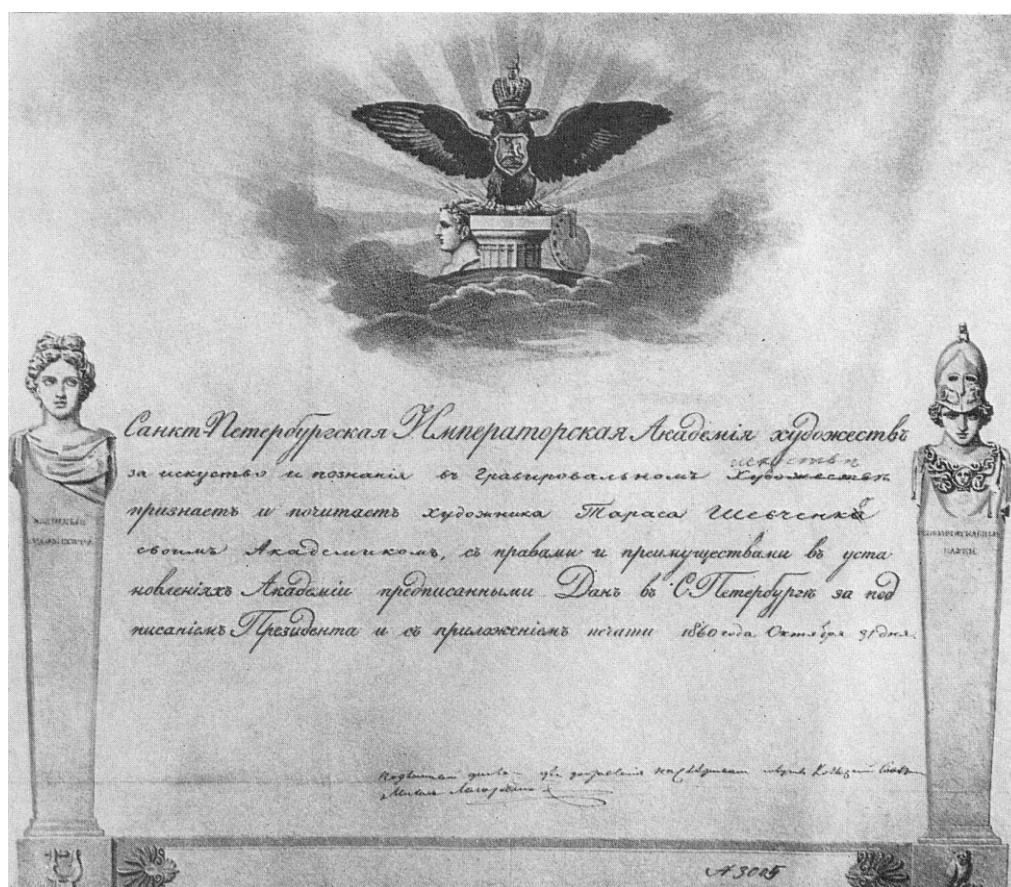 Санктпетербургская Императорская Академія художествъ
искуствѣ
за искуство и познанія въ гравировальномъ Художествѣ
признаетъ и почитаетъ художника Тараса Шевченка
своимъ Академикомъ, съ правами и преимуществами въ уста
новленіяхъ Академіи предписанными Данъ въ С.Петербургѣ за под
писаніемъ Президента и съ приложеніемъ печати 1860 года Октября 31 дня.
НАУКИ
№ 3005